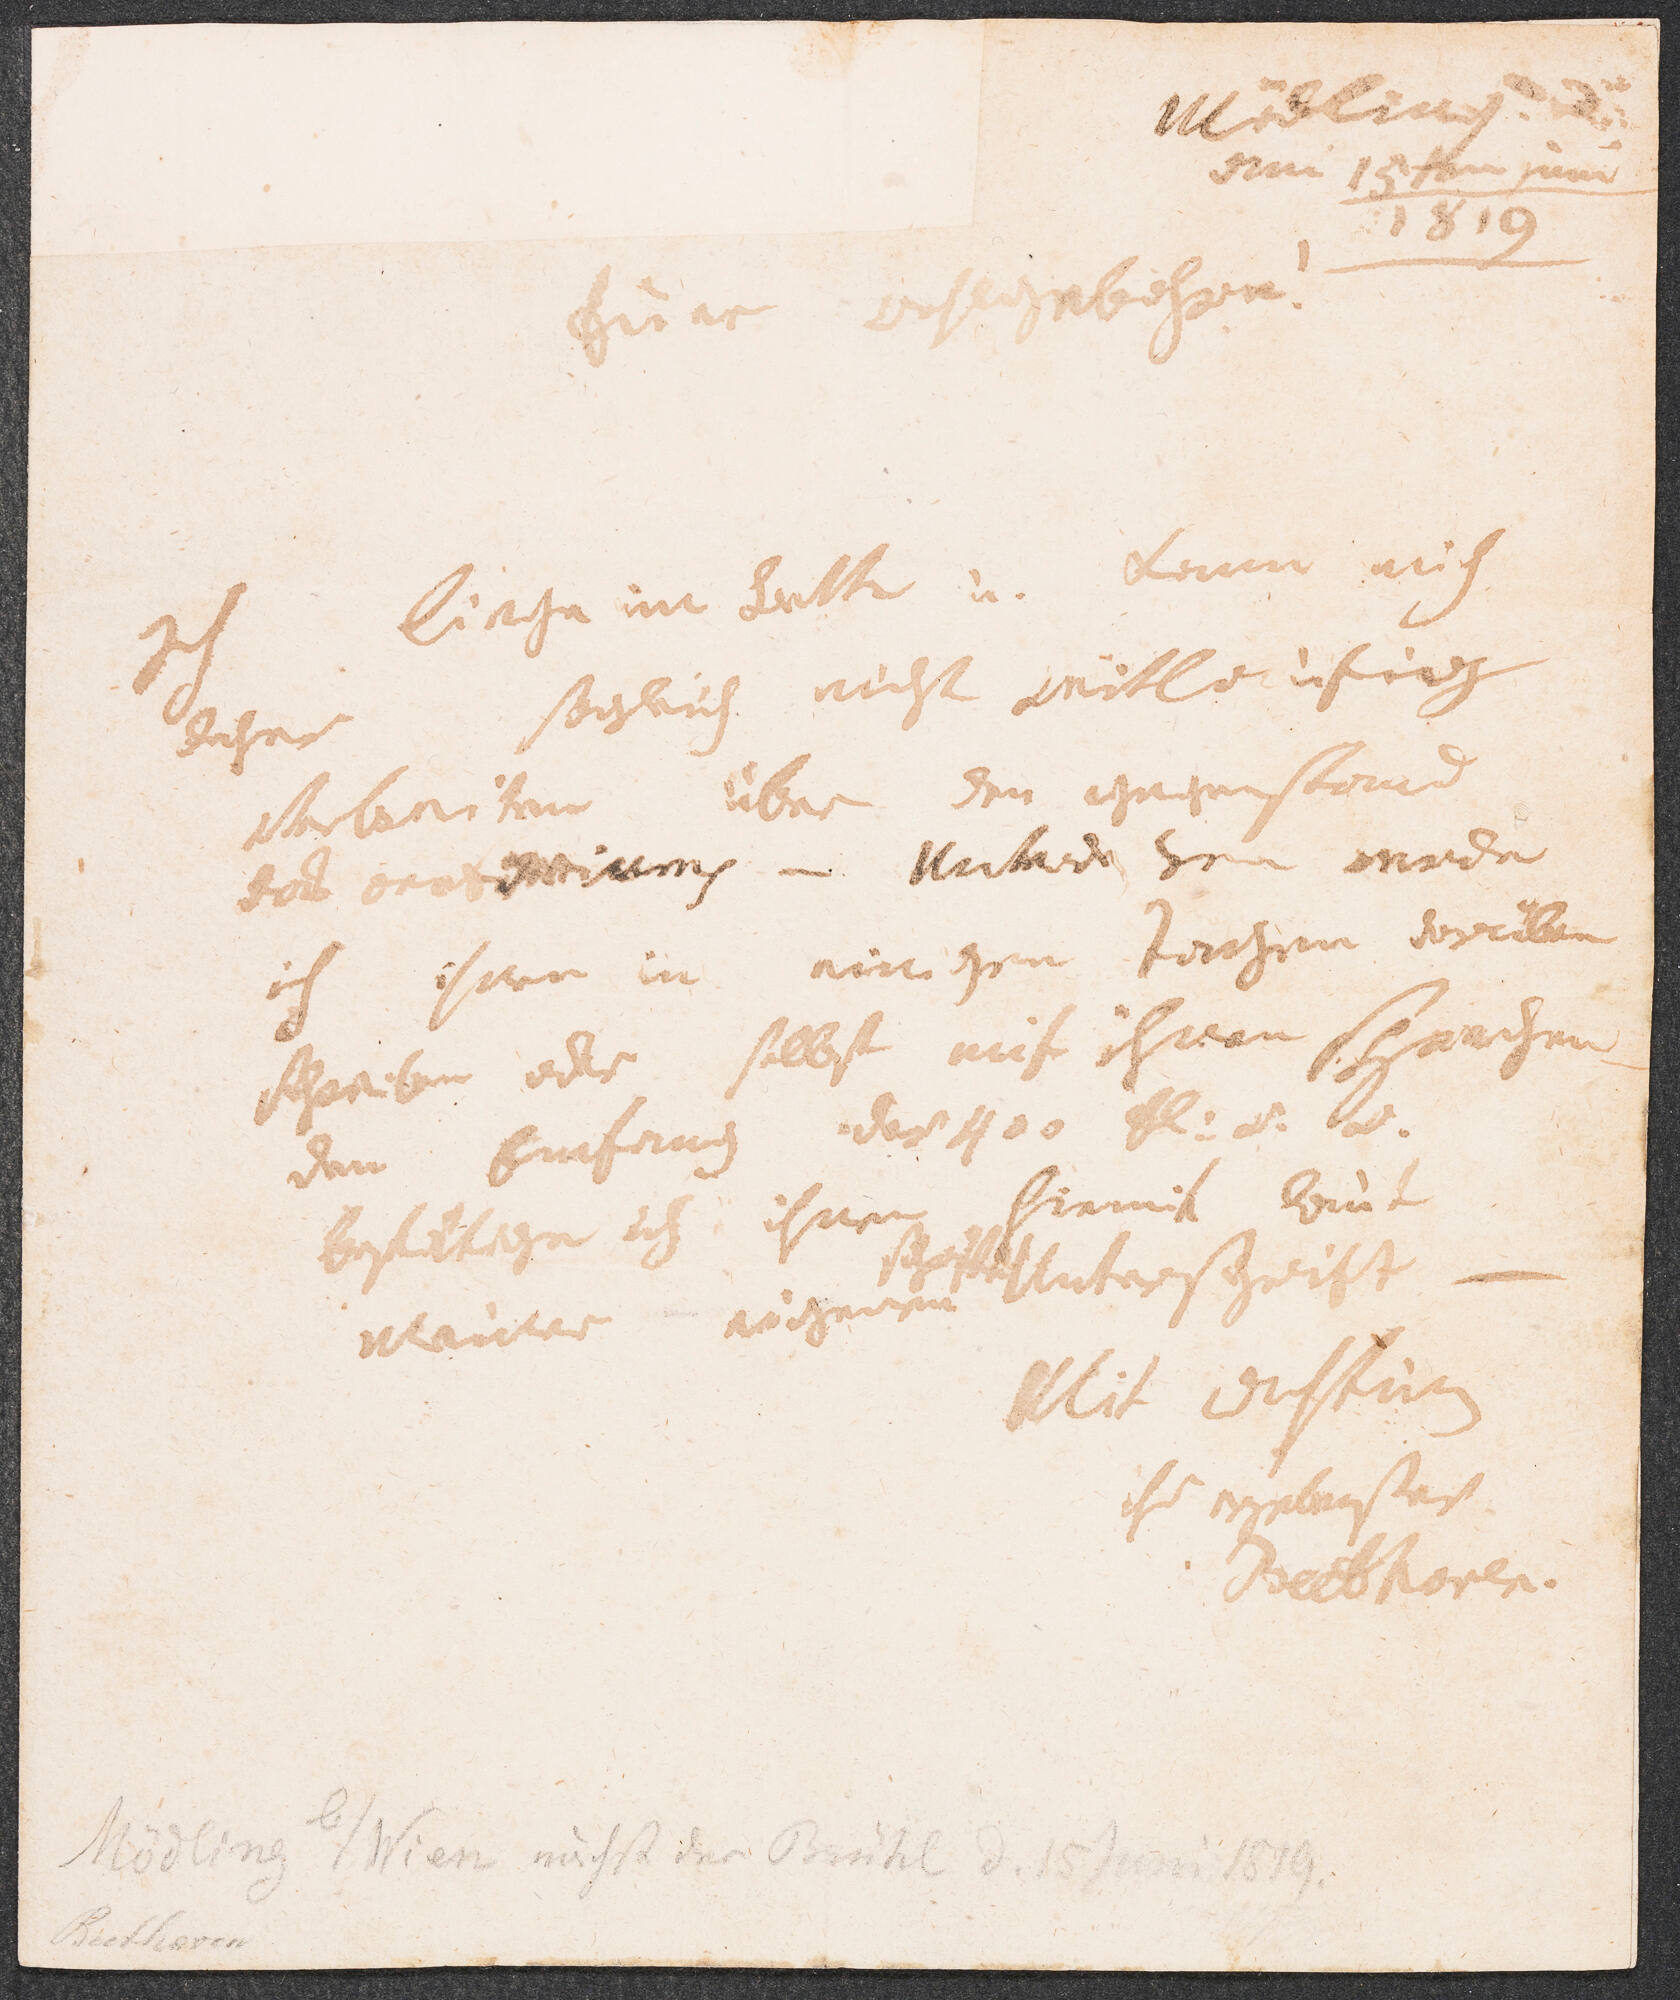 Mödling
am 15ten juni
1819
Euer wohlgebohrn!
Ich liege im Bette u. kann mich
daher sogleich nicht weitlaüfig
verbreiten über den gegenstand
des oratoriums – Unterdeßen werde
ich ihnen in einigen Tägen darüber
schreiben oder selbst mit ihnen sprechen
den Emfang der 400 fl: w. w.
bestätige ich ihnen hiemit laut
meiner eigenen Unterschrift —
Mit Achtung
ihr ergebenster
Beethoven.
Mödling b/Wien nächst der Brühl d. 15 Juni 1819.
Beethoven